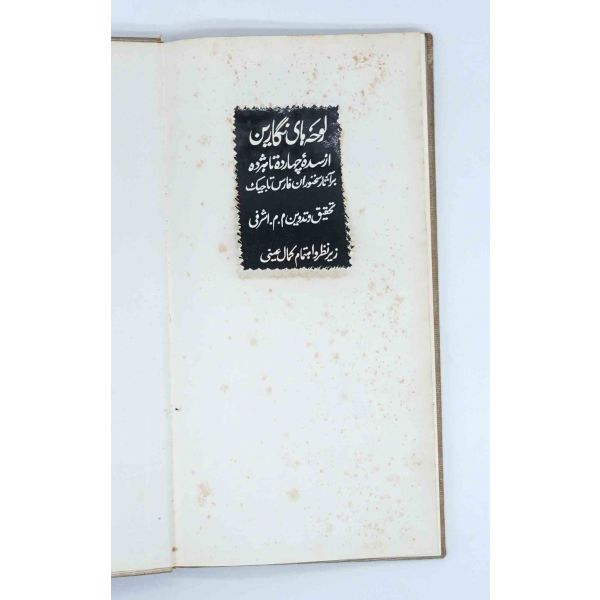 لوحه‌های نگارین
از سدهٔ چهارده تا هژده
بر آثار سخنوران فارس تاجیک
تحقیق و تدوین م. م. اشرفی
زیر نظر و اهتمام کمال عینی